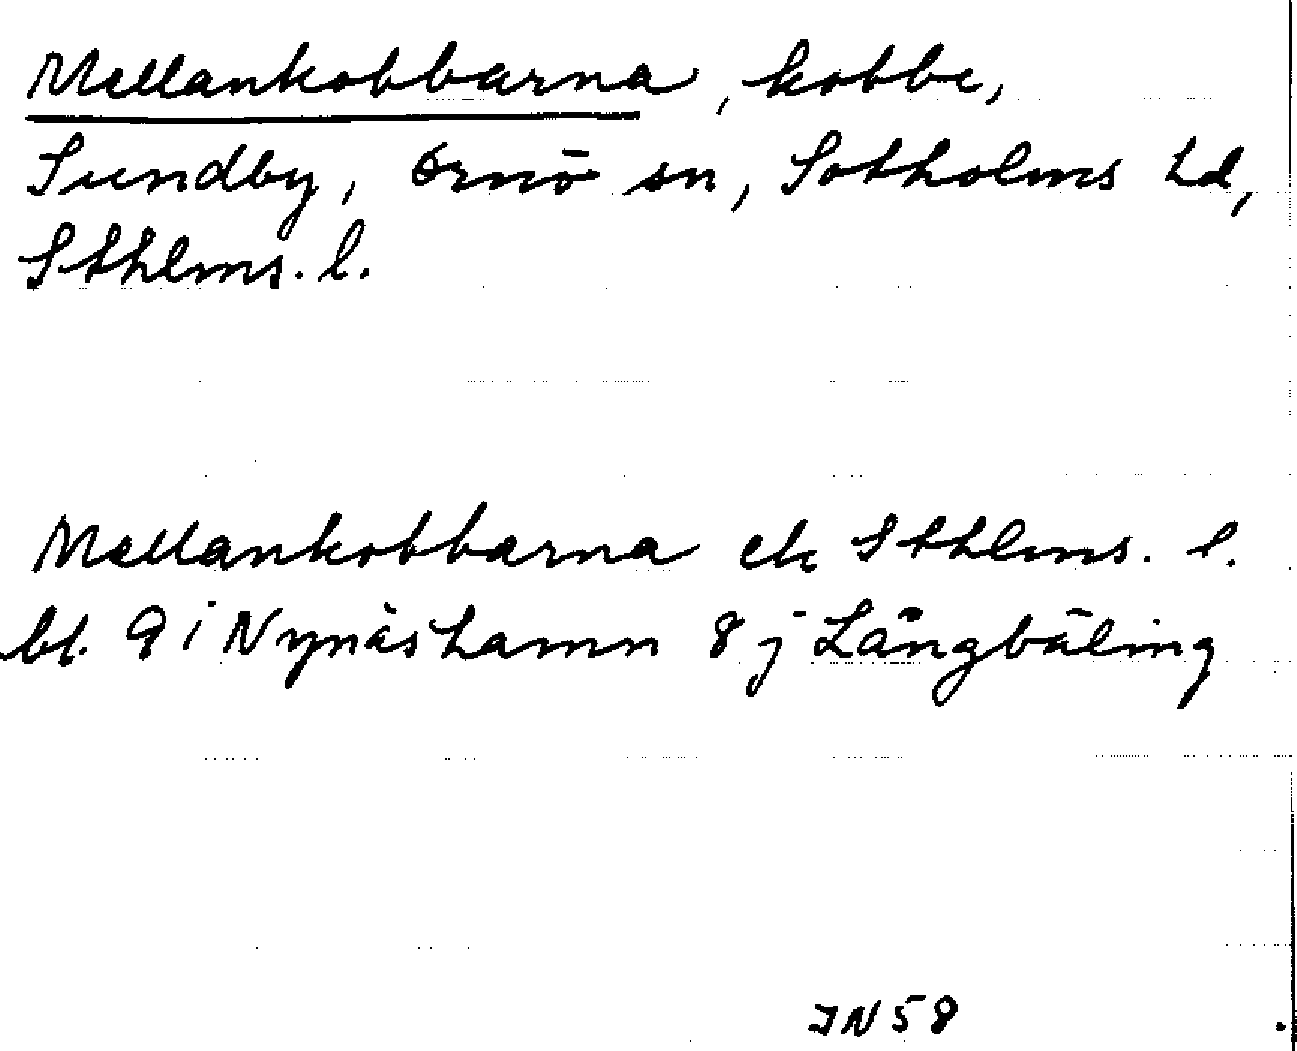 Mellankobbarna, kobbe,
Sundby, Ornö sn, Sotholms hd,
Sthlms. l.
Mellankobbarna ek Sthlms. l.
bl. 9 i Nynäshamn 8 j Långbäling
JN 58